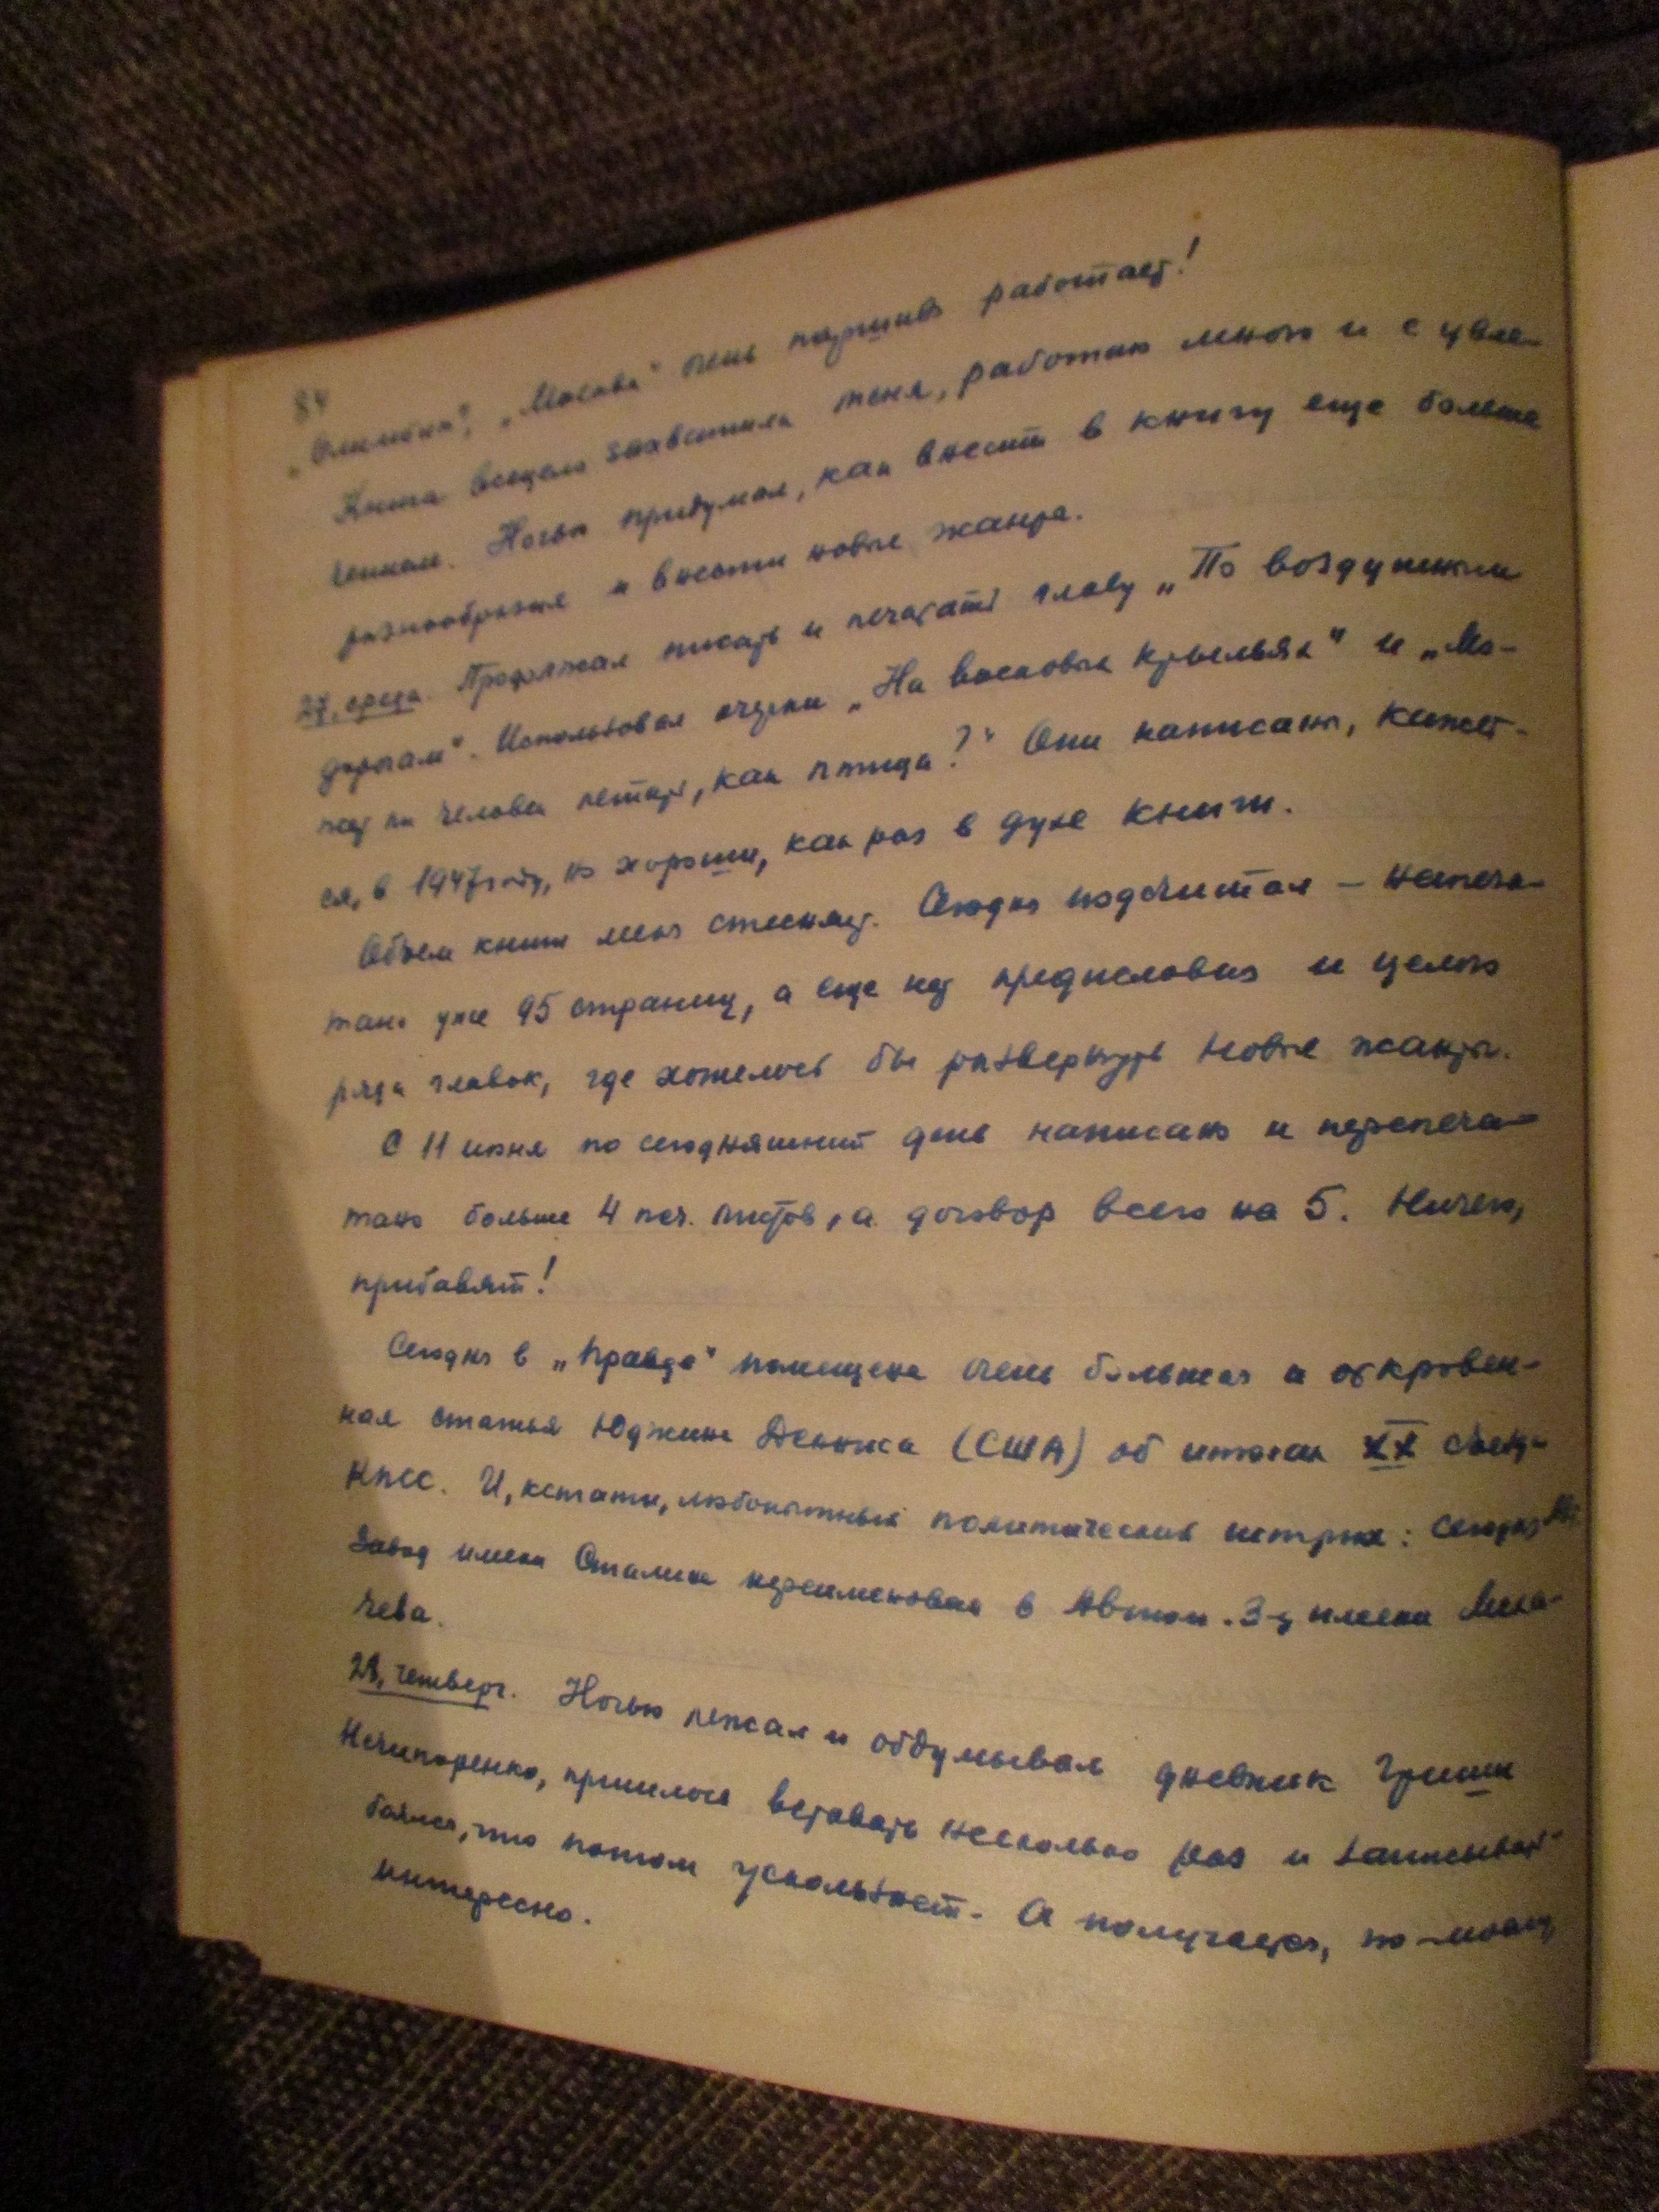 84
„Олимпия", „Москва" очень паршиво работает!
Книга всецело захватила меня, работаю много и с увле-
чением. Ночью придумал, как внести в книгу еще больше
разнообразия и внести новые жанры.
27, среда. Продолжал писать и печатать главу „По воздушным
дорогам". Использовал очерки „На восковых крыльях" и „Мо-
жет ли человек летать, как птица?" Они написаны, кажет-
ся, в 1947 году, но хороши, как раз в духе книги.
Объем книги меня стесняет. Сегодня подсчитал – напеча-
тано уже 95 страниц, а еще нет предисловия и целого
ряда главок, где хотелось бы развернуть новые жанры.
С 11 июня по сегодняшний день написано и перепеча-
тано больше 4 печ. листов, а договор всего на 5. Ничего,
прибавят!
Сегодня в „Правде" помещена очень большая и откровен-
ная статья Юджина Денниса (США) об итогах XX съезда
КПСС. И, кстати, любопытный политический штрих: сегодня
Завод имени Сталина переименован в Автом. З-д имени Лиха-
чева.
28, четверг. Ночью лежал и обдумывал дневник Гриши
Нечипоренко, пришлось вставать несколько раз и записывать
боялся, что потом ускользнет. А получается, по-моему,
интересно.